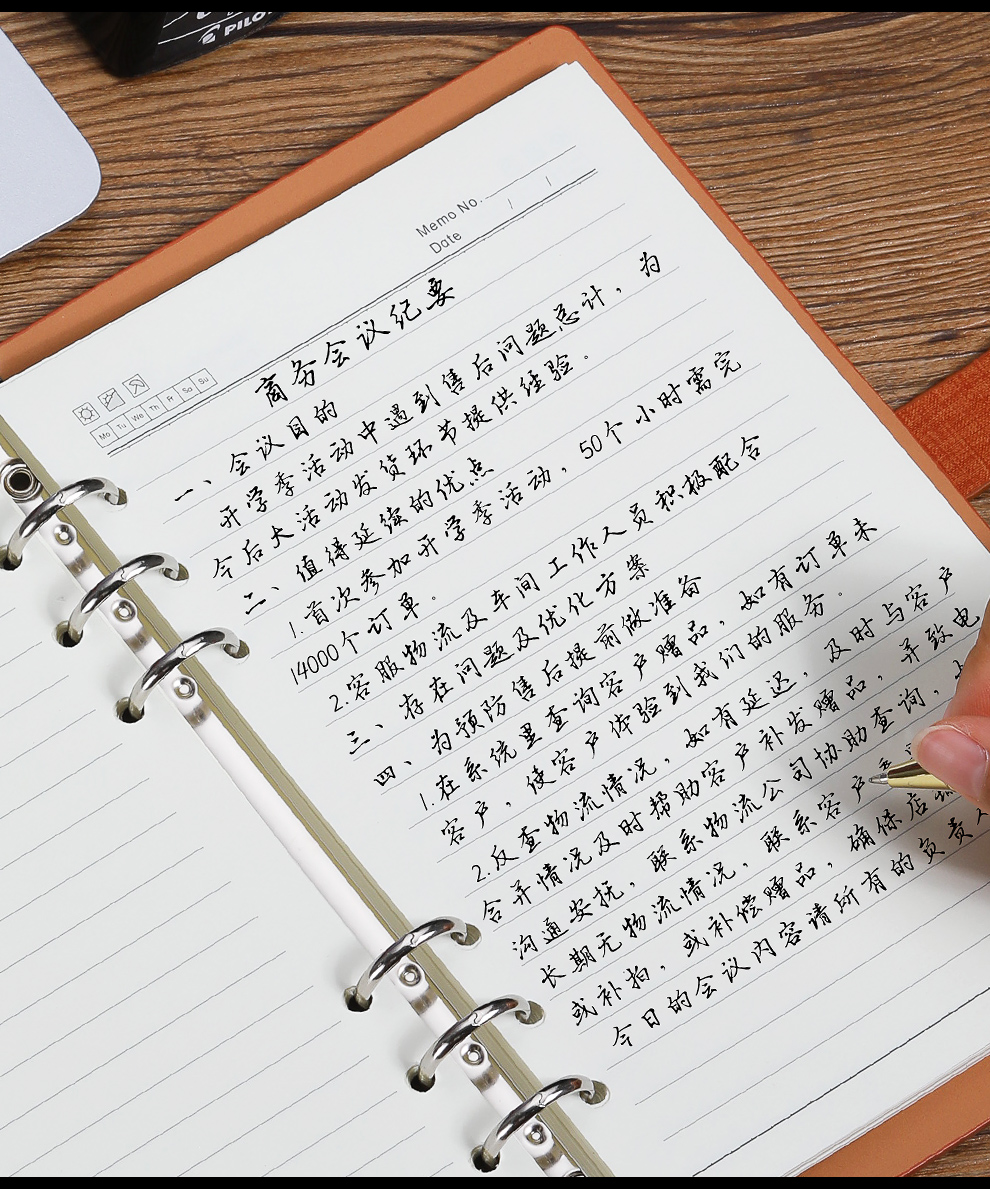 PILOT
Memo No.
Date / /
Mo Tu We Th Fr Sa Su
商务会议纪要
一、会议目的
开学季活动中遇到售后问题总计，为
今后大活动发货环节提供经验。
二、值得延续的优点
1.首次参加开学季活动，50个小时需完
14000个订单。
2.客服物流及车间工作人员积极配合
三、存在问题及优化方案
为预防售后提前做准备
四、
1.在系统里查询客户赠品，如有订单未
客户，使客户体验到我们的服务。
2.反查物流情况，如有延迟，及时与客户
合并情况及时帮助客户补发赠品，并致电
沟通安抚，联系物流公司协助查询，
长期无物流情况，联系客户
或补拍，或补偿赠品，确保店
今日的会议内容请所有的负责人